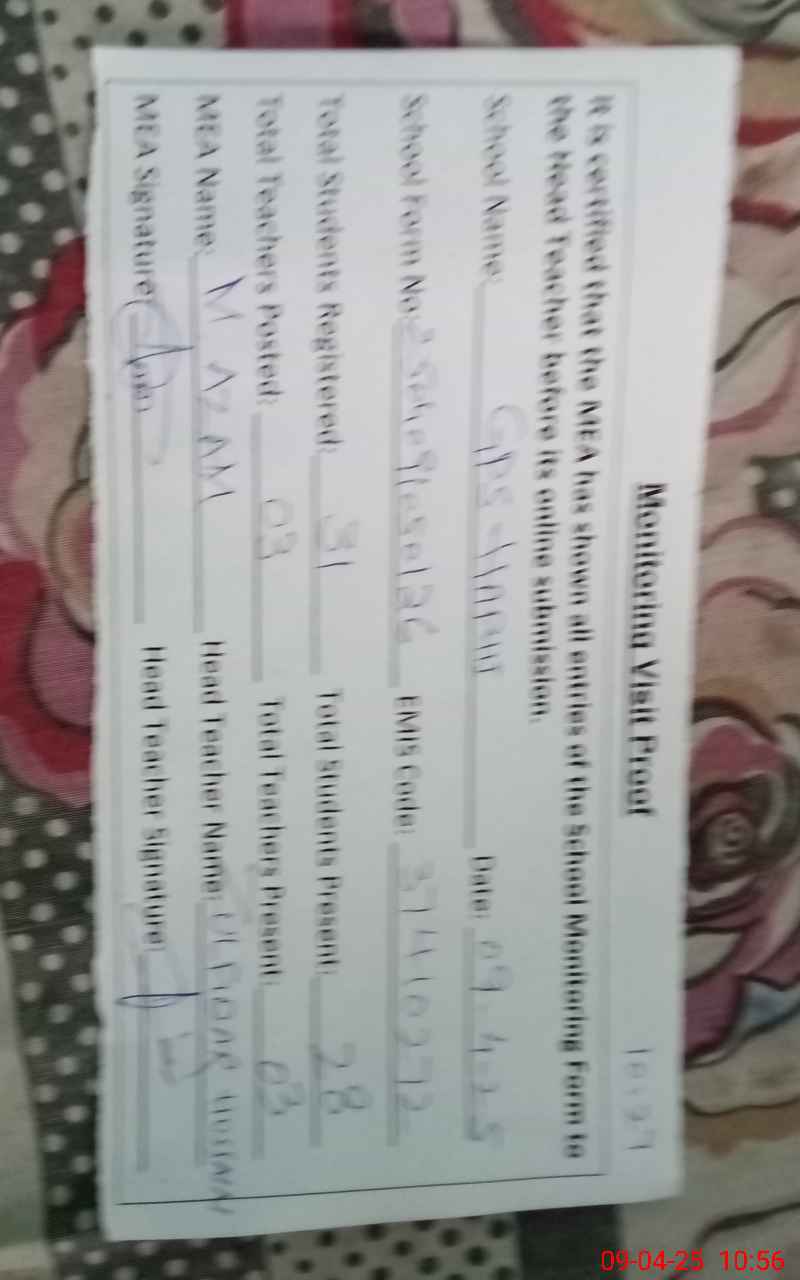 10:27
Monitoring Visit Proof
It is certified that the MEA has shown all entries of the School Monitoring Form to
the Head Teacher before its online submission.
School Name: GPS Date: 09-4-25
School Form No: EMIS Code: 37410272
Total Students Registered: 31 Total Students Present: 28
Total Teachers Posted: 03 Total Teachers Present: 03
MEA Name: M AZAM Head Teacher Name: HUSSAIN
MEA Signature: Head Teacher Signature:
09-04-25 10:56